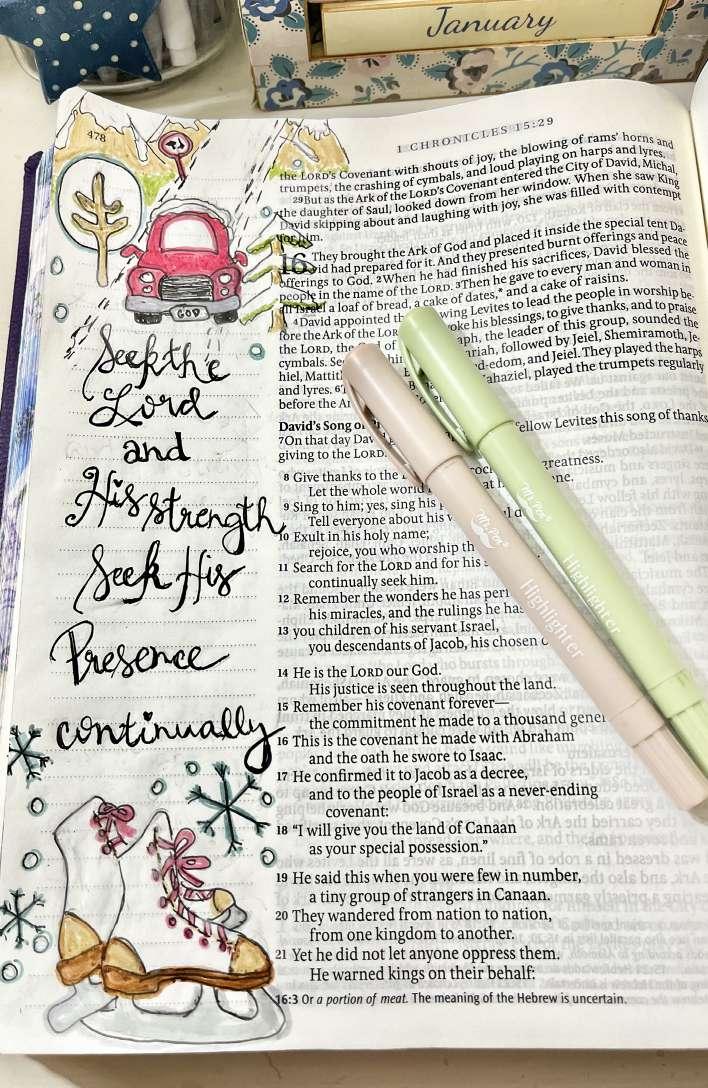 January
478
1 CHRONICLES 15:29
GOD
Seek the
Lord
and
His strength
Seek His
Presence
continually
the LORD's Covenant with shouts of joy, the blowing of rams' horns and
trumpets, the crashing of cymbals, and loud playing on harps and lyres.
29But as the Ark of the LORD's Covenant entered the City of David, Michal,
the daughter of Saul, looked down from her window. When she saw King
David skipping about and laughing with joy, she was filled with contempt
for him.
16 They brought the Ark of God and placed it inside the special tent Da-
vid had prepared for it. And they presented burnt offerings and peace
offerings to God. 2When he had finished his sacrifices, David blessed the
people in the name of the LORD. 3Then he gave to every man and woman in
all Israel a loaf of bread, a cake of dates,* and a cake of raisins.
4David appointed the wing Levites to lead the people in worship be-
fore the Ark of the LORD voke his blessings, to give thanks, and to praise
the LORD, the of aph, the leader of this group, sounded the
cymbals. Se hin ariah, followed by Jeiel, Shemiramoth, Je-
hiel, Mattit d-edom, and Jeiel. They played the harps
and lyres. ahaziel, played the trumpets regularly
before the Ar
David's Song
7On that day Dav fellow Levites this song of thanks
giving to the LORD.
8 Give thanks to the greatness.
Let the whole world one.
9 Sing to him; yes, sing his
Tell everyone about his
10 Exult in his holy name;
rejoice, you who worship th
11 Search for the LORD and for his
continually seek him.
12 Remember the wonders he has per
his miracles, and the rulings he has
13 you children of his servant Israel,
you descendants of Jacob, his chosen o
14 He is the LORD our God.
His justice is seen throughout the land.
15 Remember his covenant forever—
the commitment he made to a thousand gener
16 This is the covenant he made with Abraham
and the oath he swore to Isaac.
17 He confirmed it to Jacob as a decree,
and to the people of Israel as a never-ending
covenant:
18 "I will give you the land of Canaan
as your special possession."
19 He said this when you were few in number,
a tiny group of strangers in Canaan.
20 They wandered from nation to nation,
from one kingdom to another.
21 Yet he did not let anyone oppress them.
He warned kings on their behalf:
16:3 Or a portion of meat. The meaning of the Hebrew is uncertain.
Mr. Pen
Highlighter
Mr. Pen
Highlighter